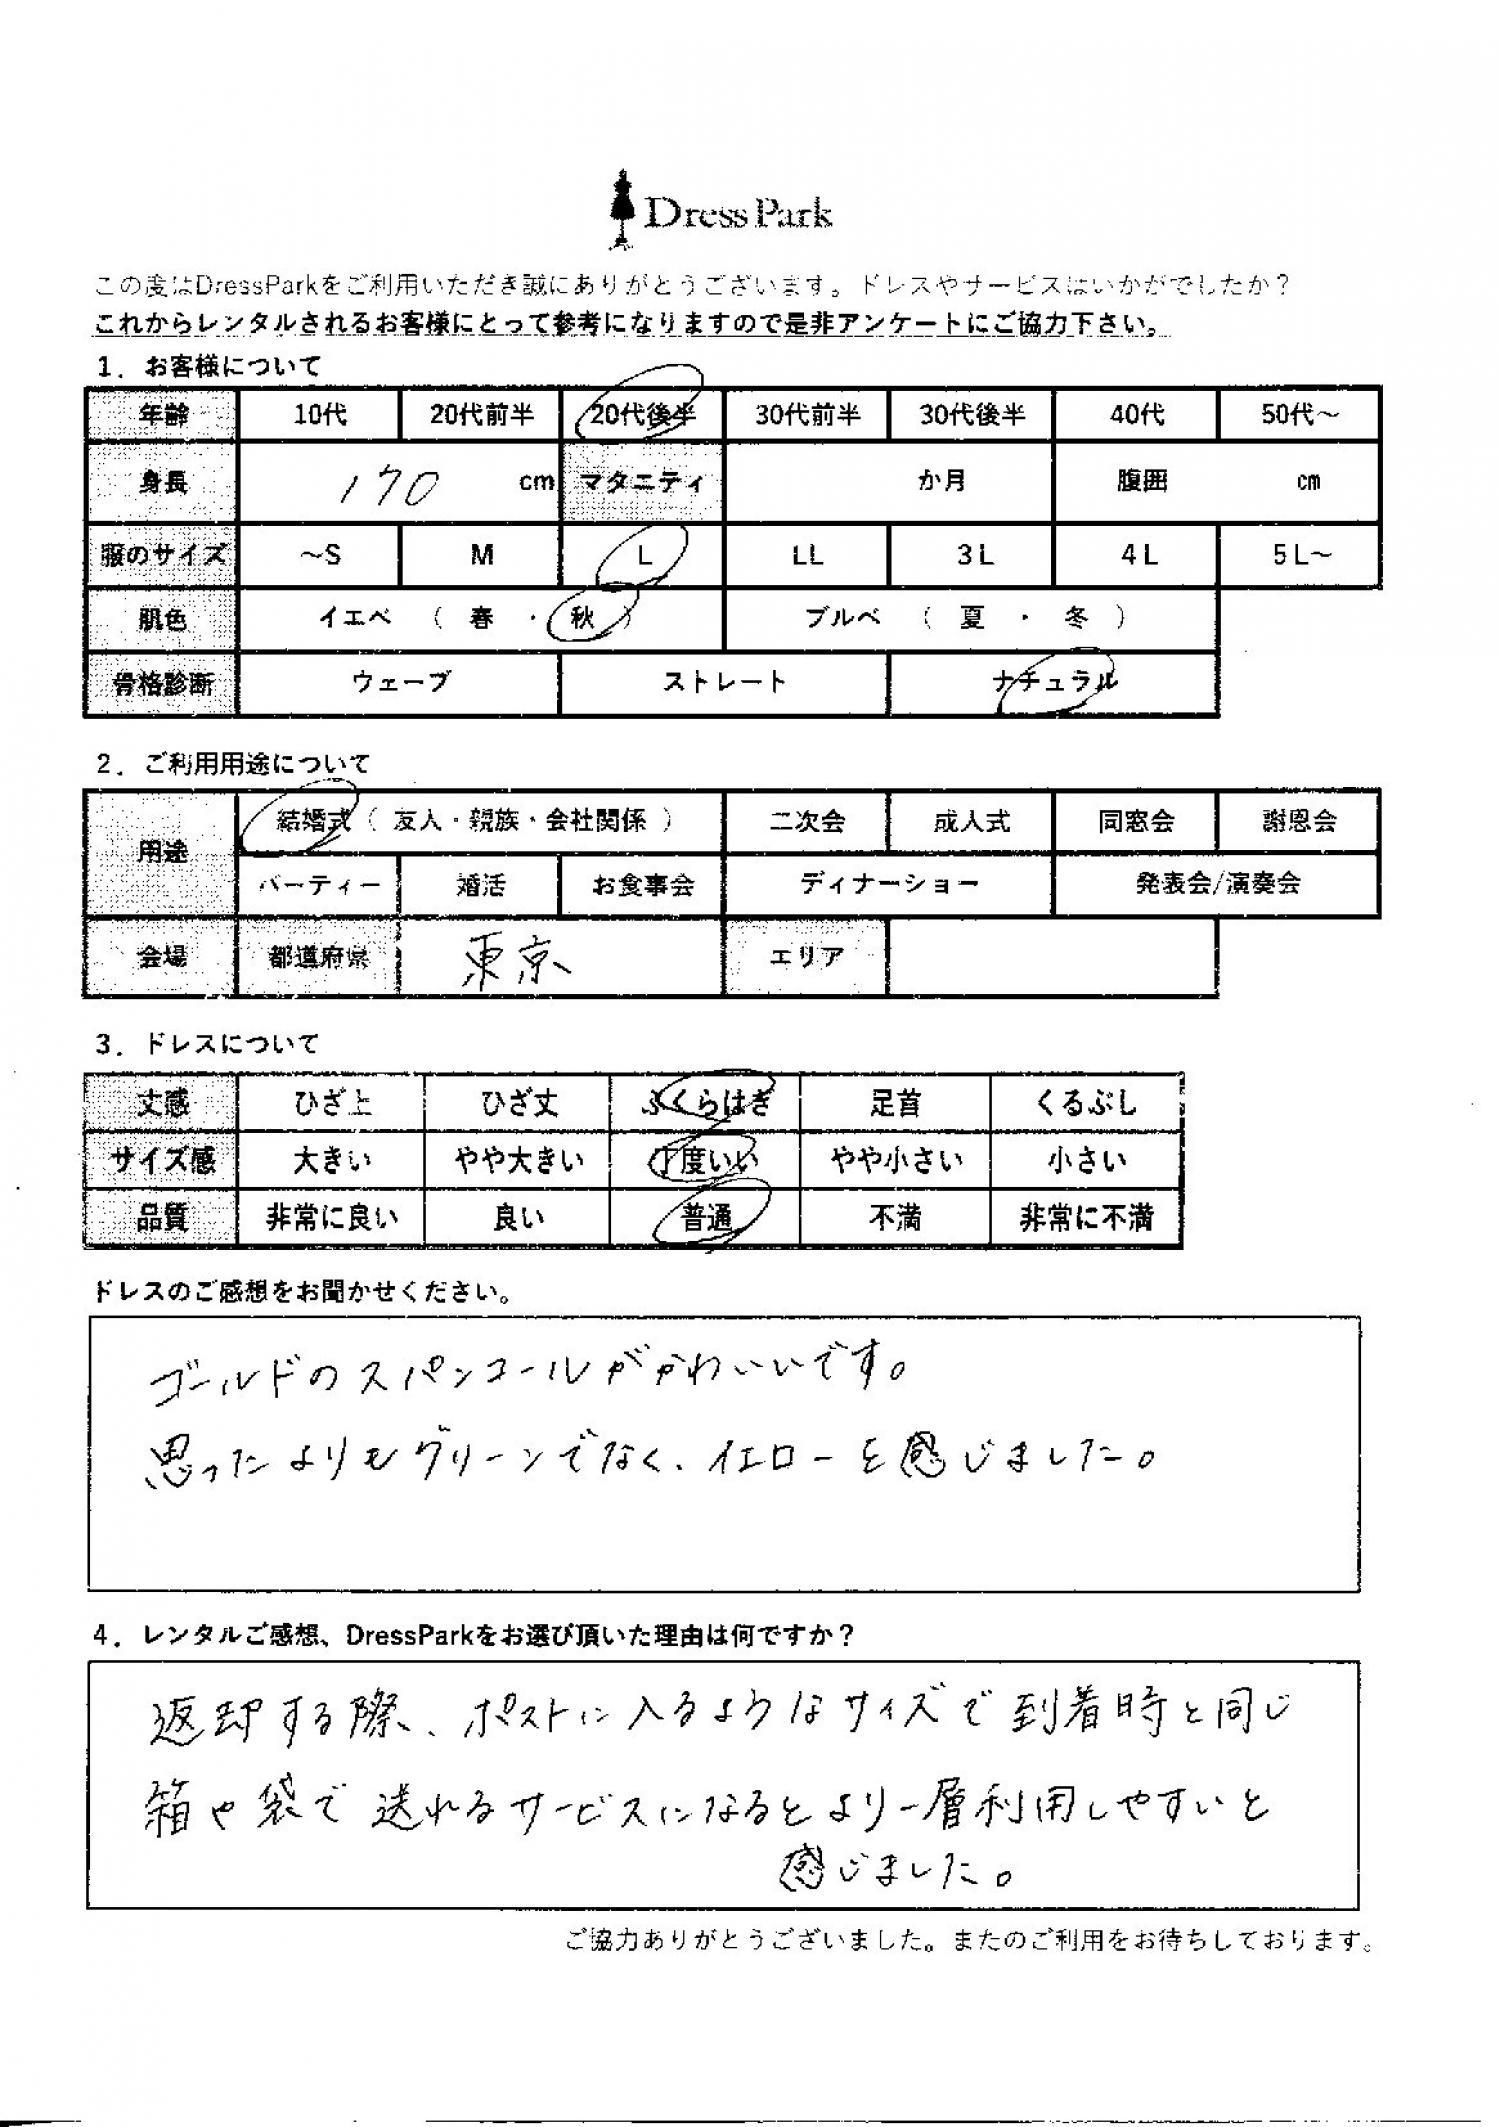 Dress Park
この度はDressParkをご利用いただき誠にありがとうございます。ドレスやサービスはいかがでしたか？
これからレンタルされるお客様にとって参考になりますので是非アンケートにご協力下さい。
1．お客様について
年齢 10代 20代前半 20代後半 30代前半 30代後半 40代 50代～
身長 170 cm マタニティ か月 腹囲 cm
服のサイズ ～S M L LL 3L 4L 5L～
肌色 イエベ （ 春 ・ 秋 ） ブルベ （ 夏 ・ 冬 ）
骨格診断 ウェーブ ストレート ナチュラル
2．ご利用用途について
用途 結婚式（ 友人・親族・会社関係 ） 二次会 成人式 同窓会 謝恩会
パーティー 婚活 お食事会 ディナーショー 発表会/演奏会
会場 都道府県 東京 エリア
3．ドレスについて
丈感 ひざ上 ひざ丈 ふくらはぎ 足首 くるぶし
サイズ感 大きい やや大きい 丁度いい やや小さい 小さい
品質 非常に良い 良い 普通 不満 非常に不満
ドレスのご感想をお聞かせください。
ゴールドのスパンコールがかわいいです。
思ったよりもグリーンでなく、イエローを感じました。
4．レンタルご感想、DressParkをお選び頂いた理由は何ですか？
返却する際、ポストに入るようなサイズで到着時と同じ
箱や袋で送れるサービスになるとより一層利用しやすいと
感じました。
ご協力ありがとうございました。またのご利用をお待ちしております。